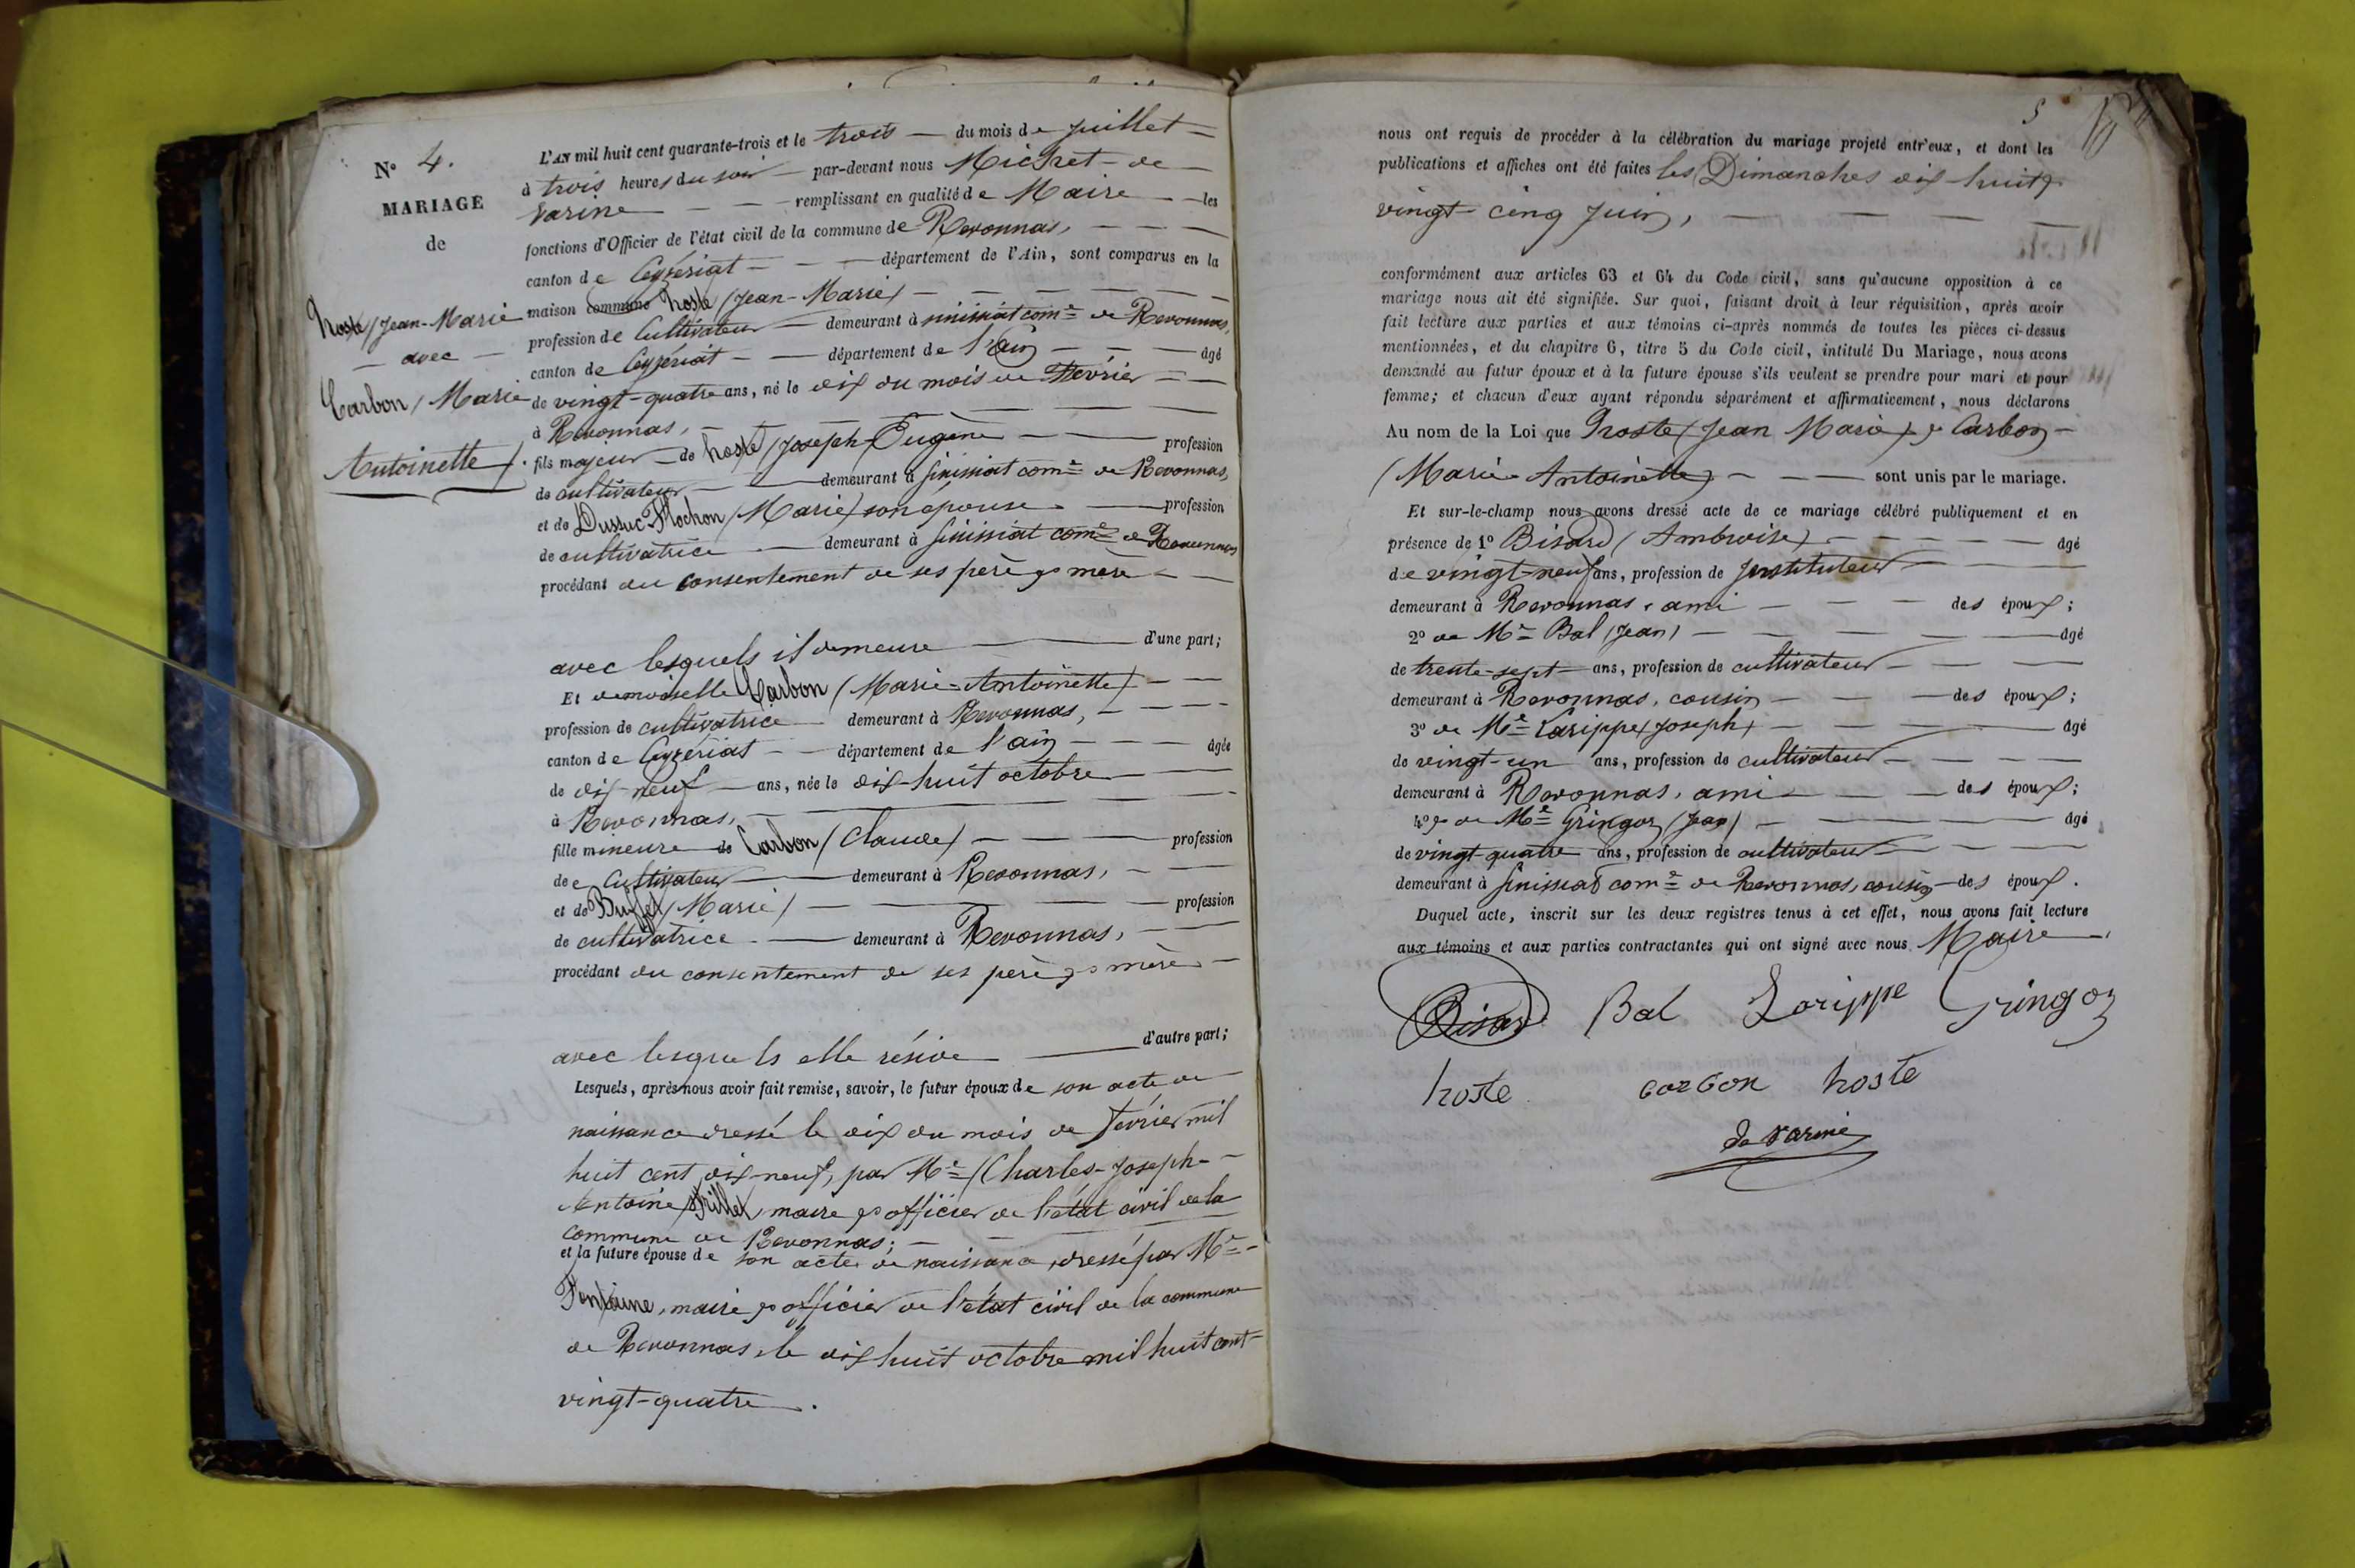 N° 4.
MARIAGE
de
hoste (Jean-Marie
— avec —
Carbon (Marie
Antoinette).
L'AN mil huit cent quarante-trois et le trois — du mois de juillet =
à trois heures du soir — par-devant nous Michet - de —
Varine — — — remplissant en qualité de Maire — — les
fonctions d'Officier de l'état civil de la commune de Revonnas, — — —
canton de Ceyzériat — — — département de l'Ain, sont comparus en la
maison commune hoste (Jean-Marie) — — — — —
profession de Cultivateur — demeurant à sinissiat com.e de Revonnas,
canton de Ceyzériat — — département de l'ain — — — âgé
de vingt-quatre ans, né le dix du mois de février — —
à Revonnas, — — — —
fils majeur — de hoste (Joseph-Eugène — — profession
de cultivateur — demeurant à sinissiat com.e de Revonnas,
et de Dussuc-Flochon (Marie) son épouse. — profession
de cultivatrice — demeurant à sinissiat com.e de Revonnas
procédant du consentement de ses père & mère — —
avec lesquels il demeure — d'une part;
Et demoiselle Carbon (Marie-Antoinette) — —
profession de cultivatrice demeurant à Revonnas, — — — -
canton de Ceyzériat — — département de l'ain — — — âgée
de dix-neuf — ans, née le dix-huit octobre — —
à Revonnas, — — — —
fille mineure de Carbon (Claude) — — — profession
de Cultivateur — demeurant à Revonnas, — —
et de Buffet (Marie) — — — profession
de cultivatrice. — demeurant à Revonnas, — —
procédant du consentement de ses père & mère —
avec lesquels elle réside — d'autre part;
Lesquels, après nous avoir fait remise, savoir, le futur époux de son acte de
naissance dressé le dix du mois de février mil
huit cent dix-neuf, par Mr (Charles-Joseph-
Antoine) maire & officier de l'état civil de la
commune de Revonnas; — — —
et la future épouse de son acte de naissance, dressé par Mr -
Fontaine, maire & officier de l'état civil de la commune
de Revonnas, le dix huit octobre mil huit cent-
vingt-quatre.
5
nous ont requis de procéder à la célébration du mariage projeté entr'eux, et dont les
publications et affiches ont été faites les Dimanches dix-huit &
vingt-cinq Juin, — — — —
conformément aux articles 63 et 64 du Code civil, sans qu'aucune opposition à ce
mariage nous ait été signifiée. Sur quoi, faisant droit à leur réquisition, après avoir
fait lecture aux parties et aux témoins ci-après nommés de toutes les pièces ci-dessus
mentionnées, et du chapitre 6, titre 5 du Code civil, intitulé Du Mariage, nous avons
demandé au futur époux et à la future épouse s'ils veulent se prendre pour mari et pour
femme; et chacun d'eux ayant répondu séparément et affirmativement, nous déclarons
Au nom de la Loi que hoste (Jean Marie) & Carbon —
(Marie-Antoinette) — — — sont unis par le mariage.
Et sur-le-champ nous avons dressé acte de ce mariage célébré publiquement et en
présence de 1° Bisard (Ambroise) — — — — — âgé
de vingt-neuf ans, profession de Instituteur — —
demeurant à Revonnas, ami — — — des époux;
2° de Mr Bal (Jean) — — — — — âgé
de trente-sept — ans, profession de cultivateur — — —
demeurant à Revonnas, cousin — — — des époux;
3° de Mr Larippe (Joseph) — — — — âgé
de vingt-un ans, profession de cultivateur — — — —
demeurant à Revonnas, ami — — — des époux;
4° & de Mr Gringoz (Jean) — — — âgé
de vingt-quatre ans, profession de cultivateur — — —
demeurant à sinissiat com.e de Revonnas, cousin — des époux.
Duquel acte, inscrit sur les deux registres tenus à cet effet, nous avons fait lecture
aux témoins et aux parties contractantes qui ont signé avec nous Maire —.
Bisard Bal Larippe Gringoz
hoste carbon hoste
de Varine